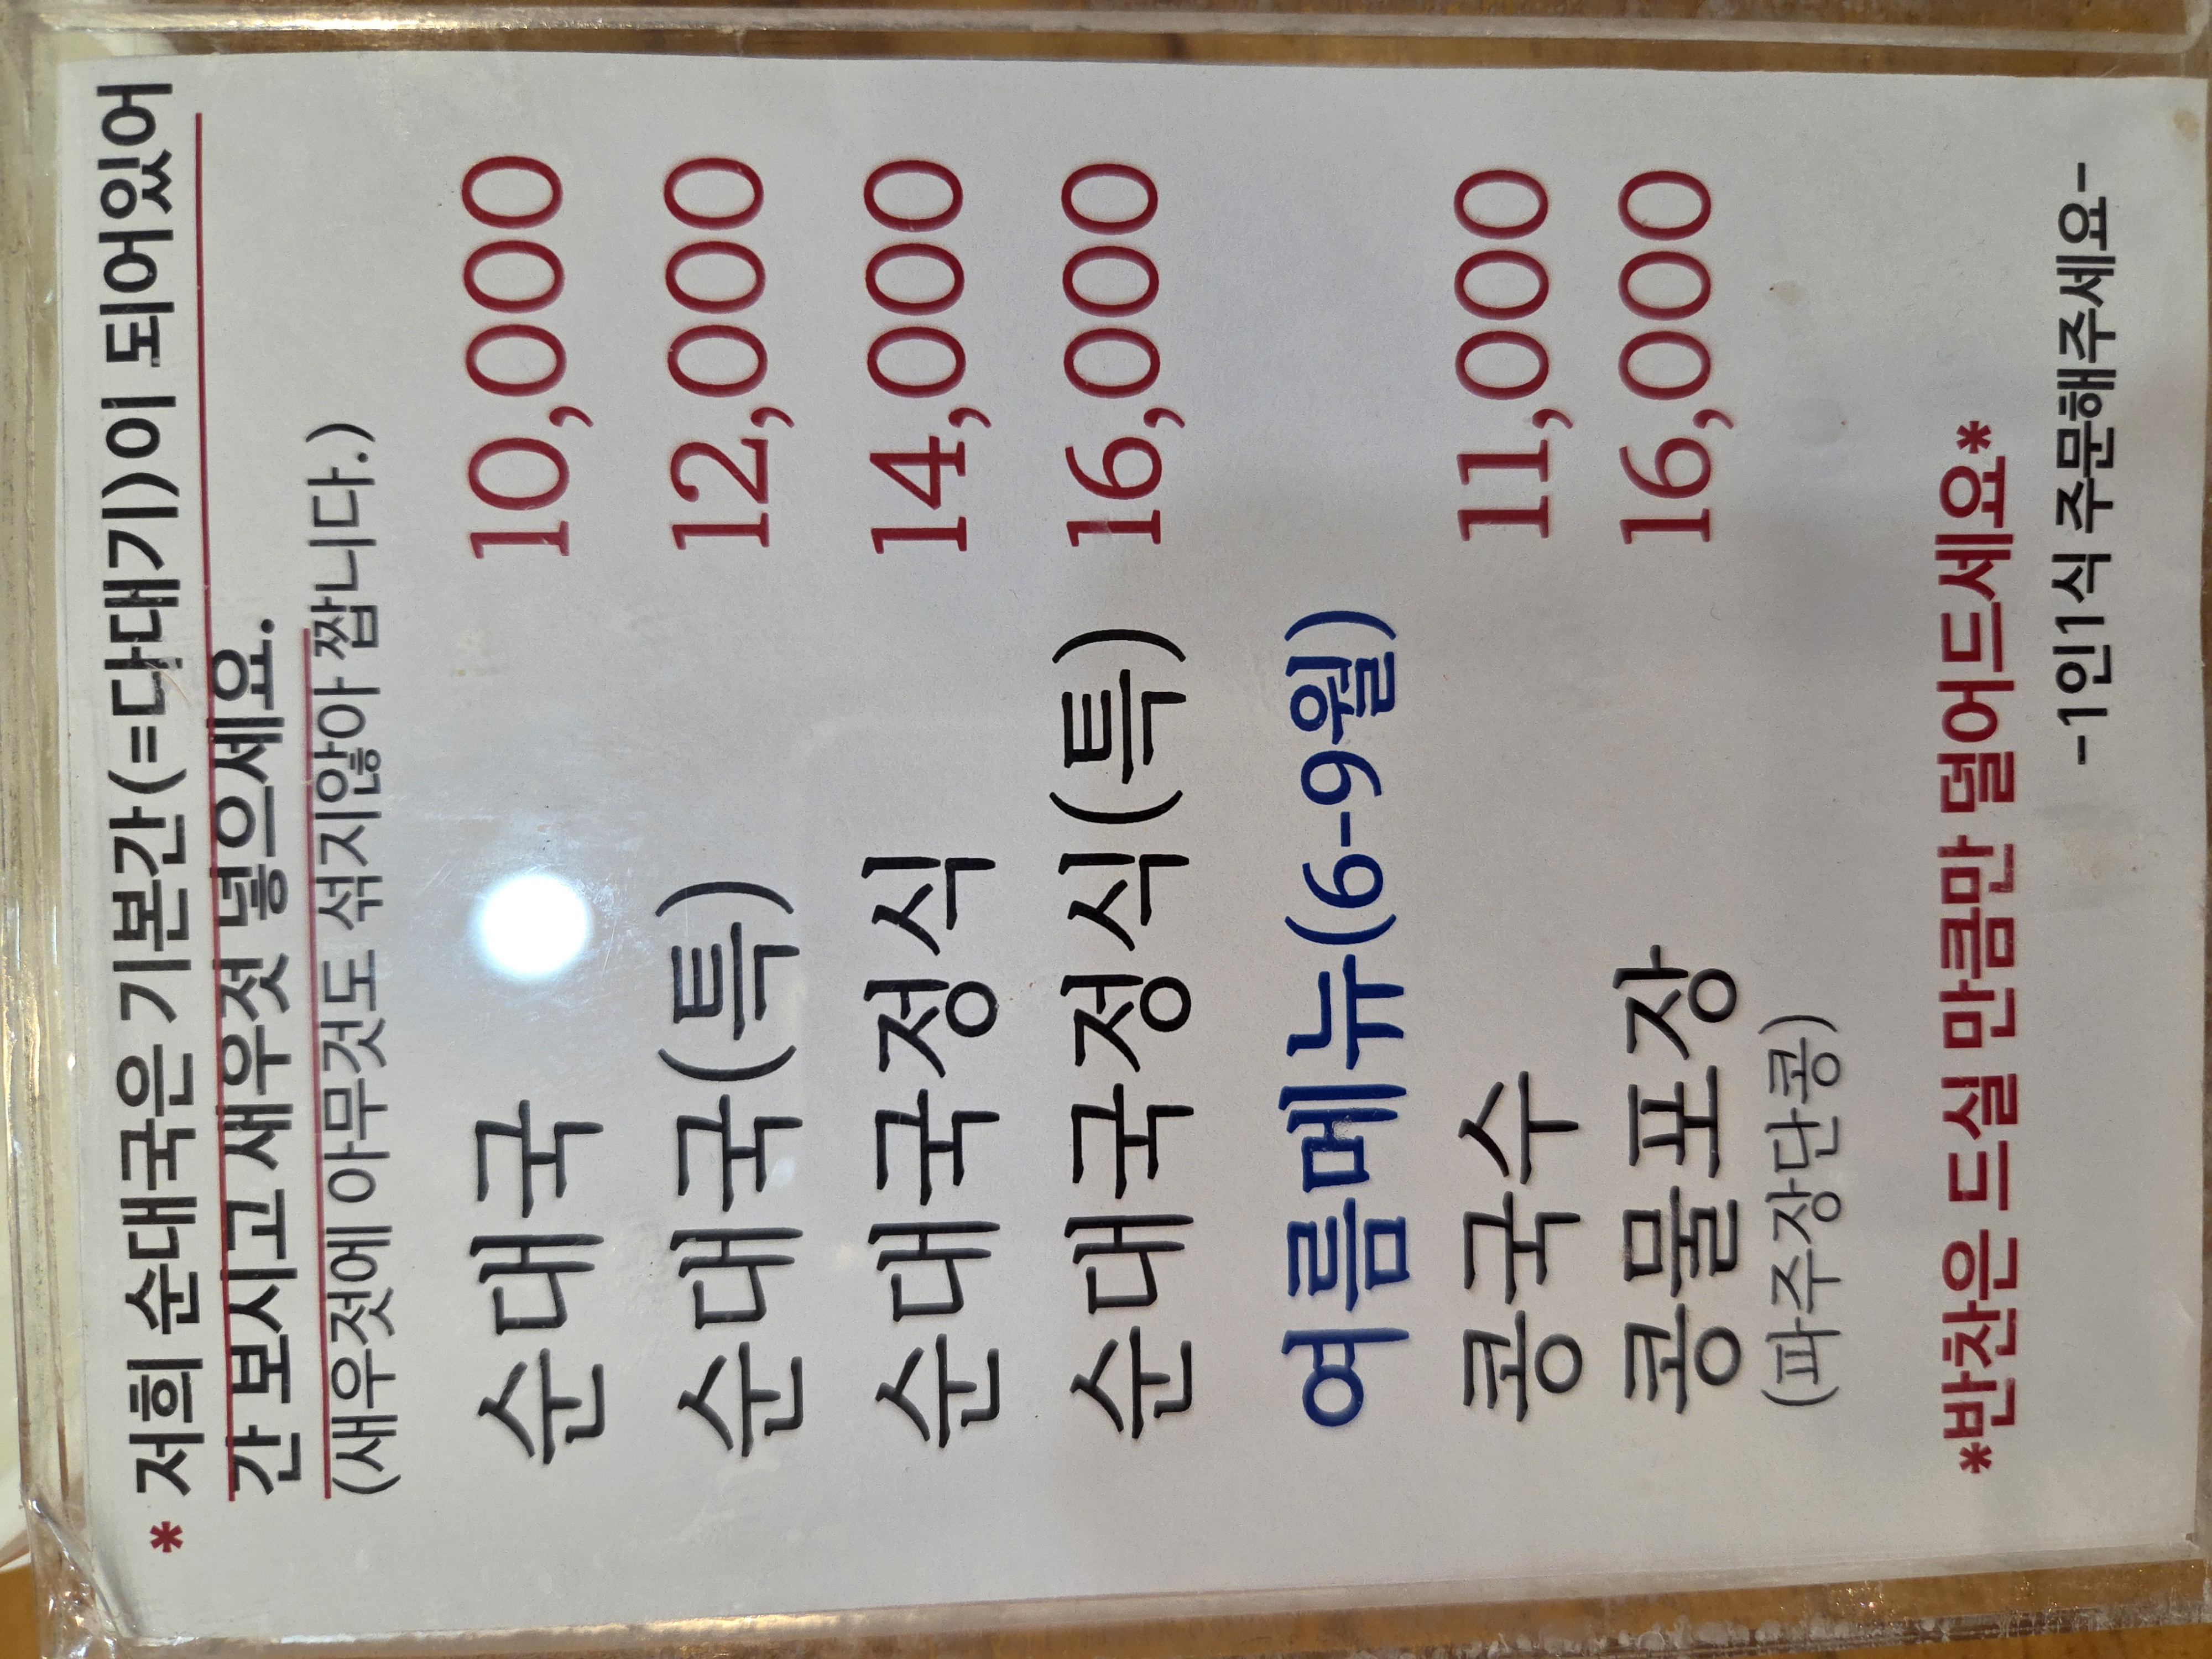 * 저희 순대국은 기본간(=다대기)이 되어있어
간 보시고 새우젓 넣으세요.
(새우젓에 아무것도 섞지않아 짭니다.)
순대국 10,000
순대국(특) 12,000
순대국정식 14,000
순대국정식(특) 16,000
여름메뉴(6-9월)
콩국수 11,000
콩물포장 16,000
(파주장단콩)
*반찬은 드실 만큼만 덜어드세요*
-1인1식 주문해주세요-